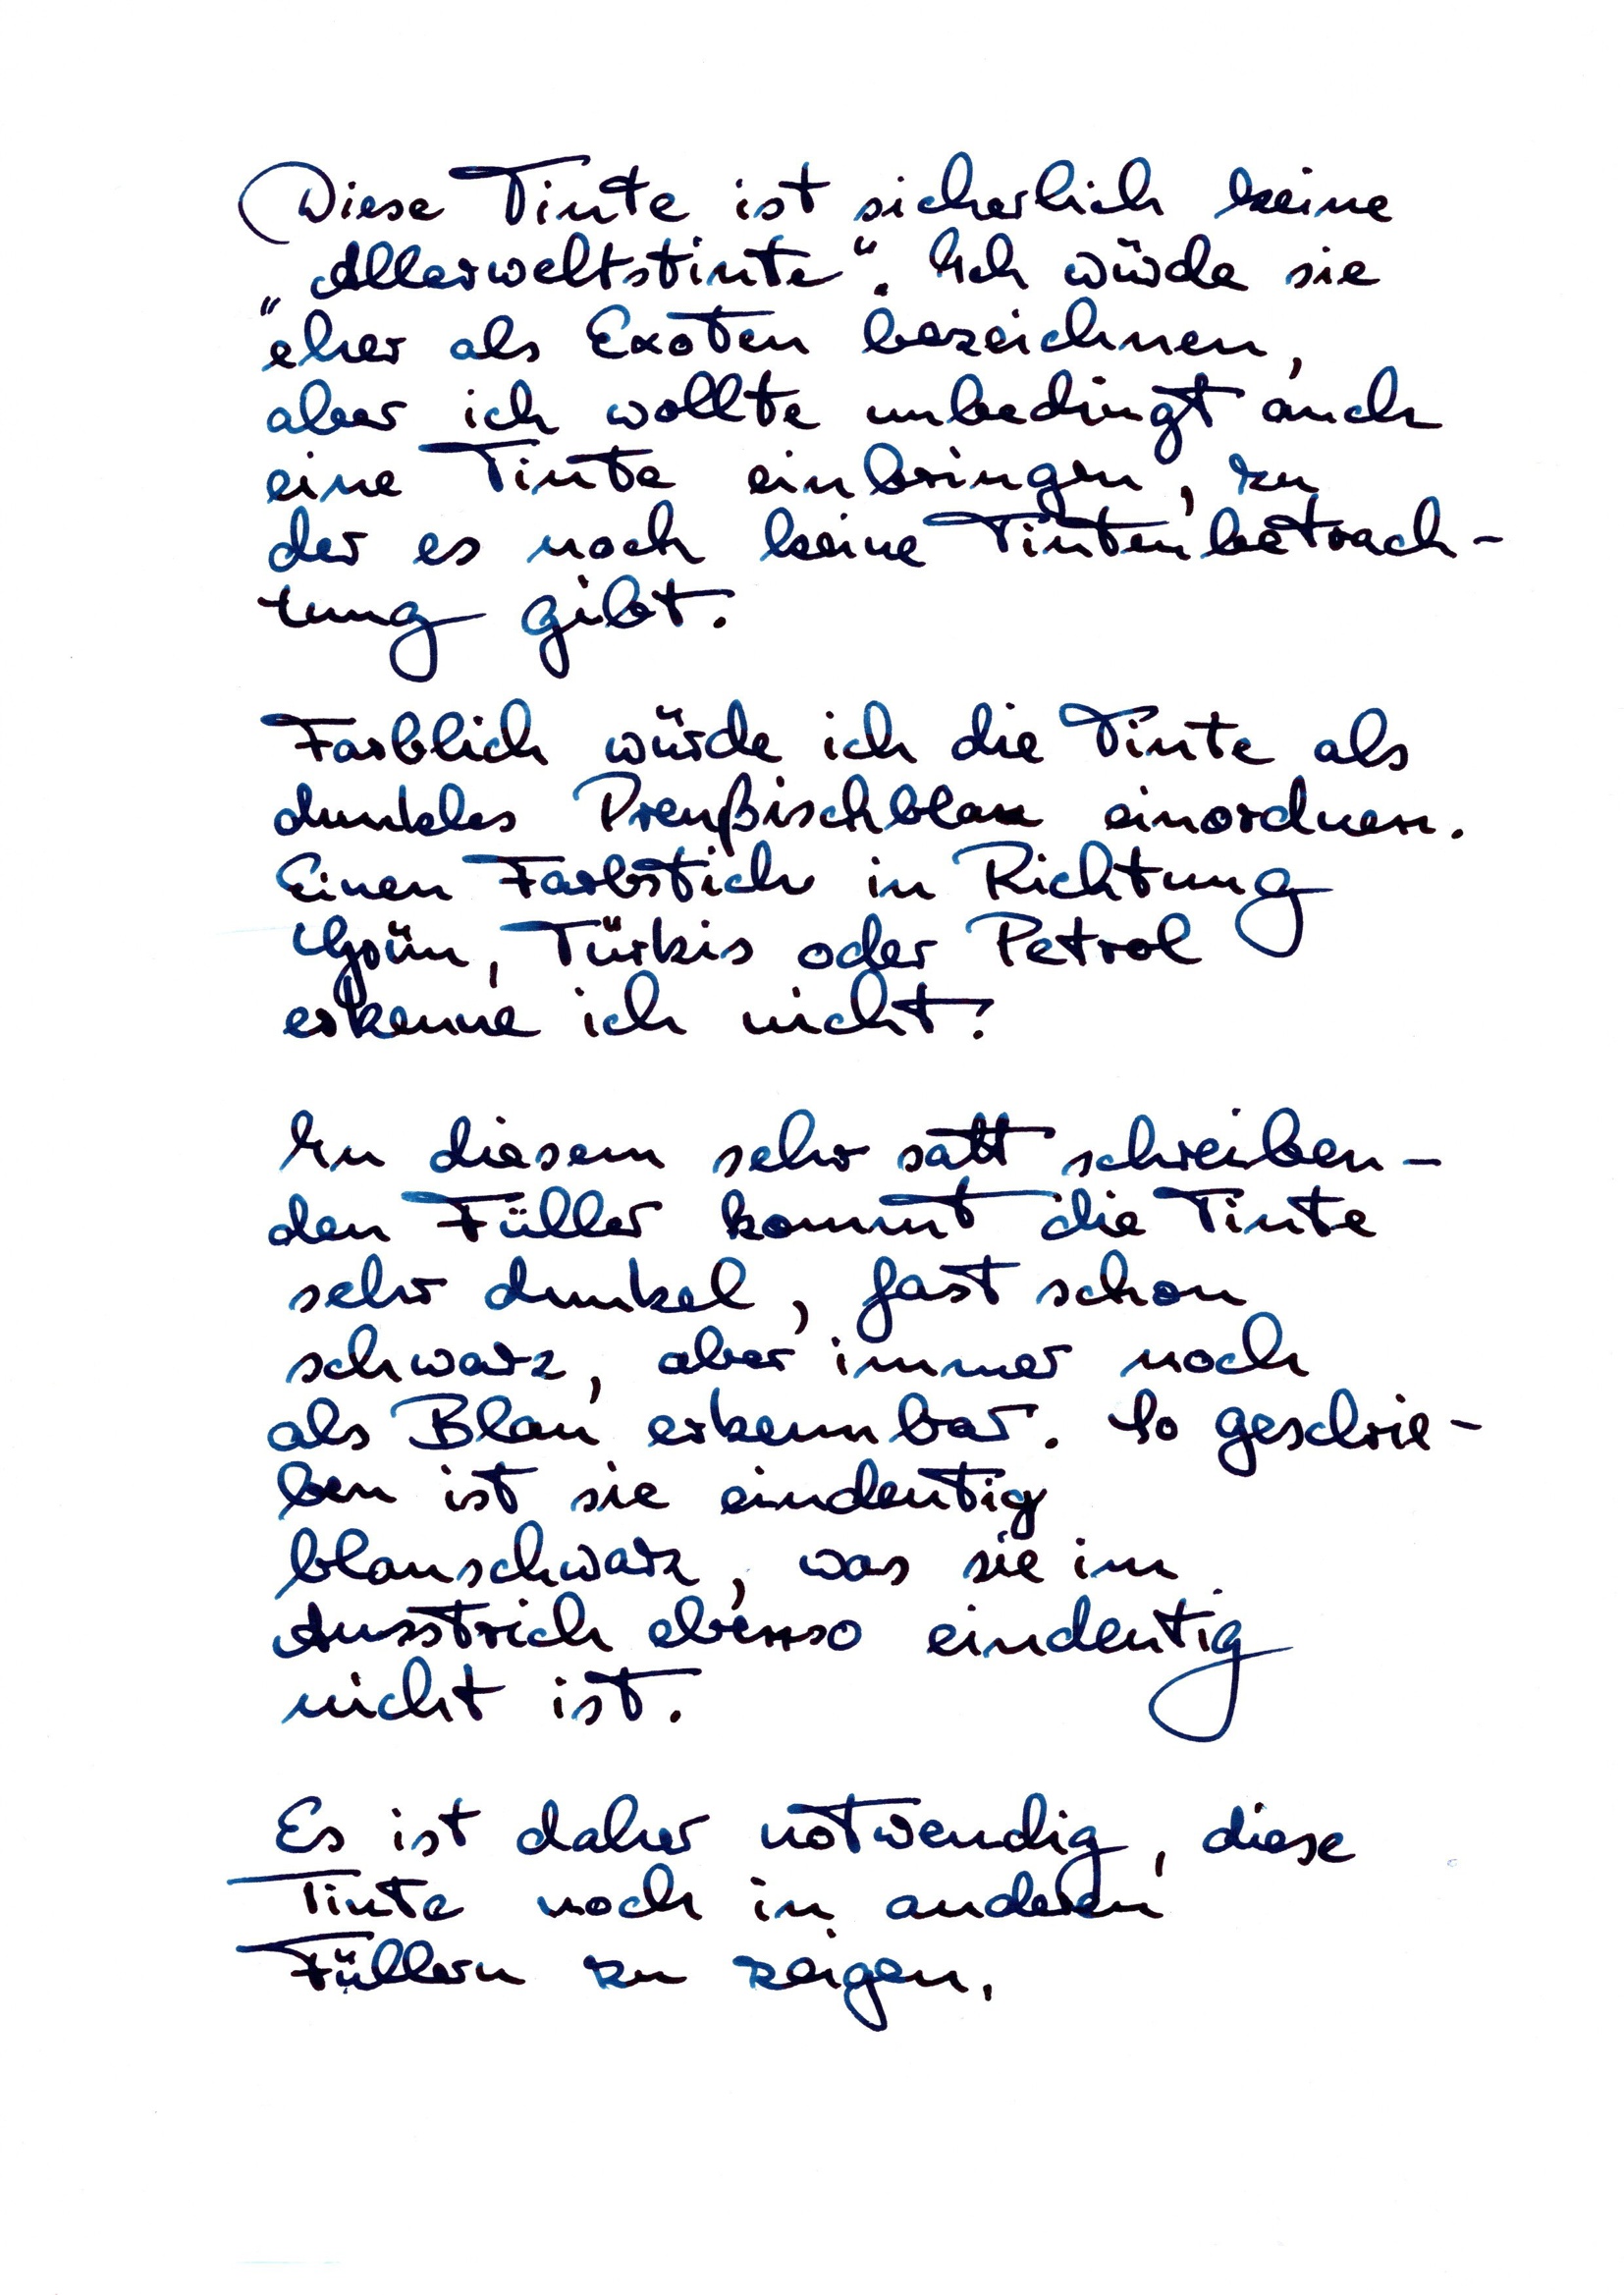 Diese Tinte ist sicherlich keine
„Allerweltstinte“. Ich würde sie
eher als Exoten bezeichnen,
aber ich wollte unbedingt auch
eine Tinte einbringen, zu
der es noch keine Tintenbetrach-
tung gibt.
Farblich würde ich die Tinte als
dunkles Preußischblau einordnen.
Einen Farbstich in Richtung
Grün, Türkis oder Petrol
erkenne ich nicht!
In diesem sehr satt schreiben-
den Füller kommt die Tinte
sehr dunkel, fast schon
schwarz, aber immer noch
als Blau erkennbar. So geschrie-
ben ist sie eindeutig
blauschwarz, was sie im
Ausstrich ebenso eindeutig
nicht ist.
Es ist daher notwendig, diese
Tinte noch in anderen
Füllern zu zeigen.